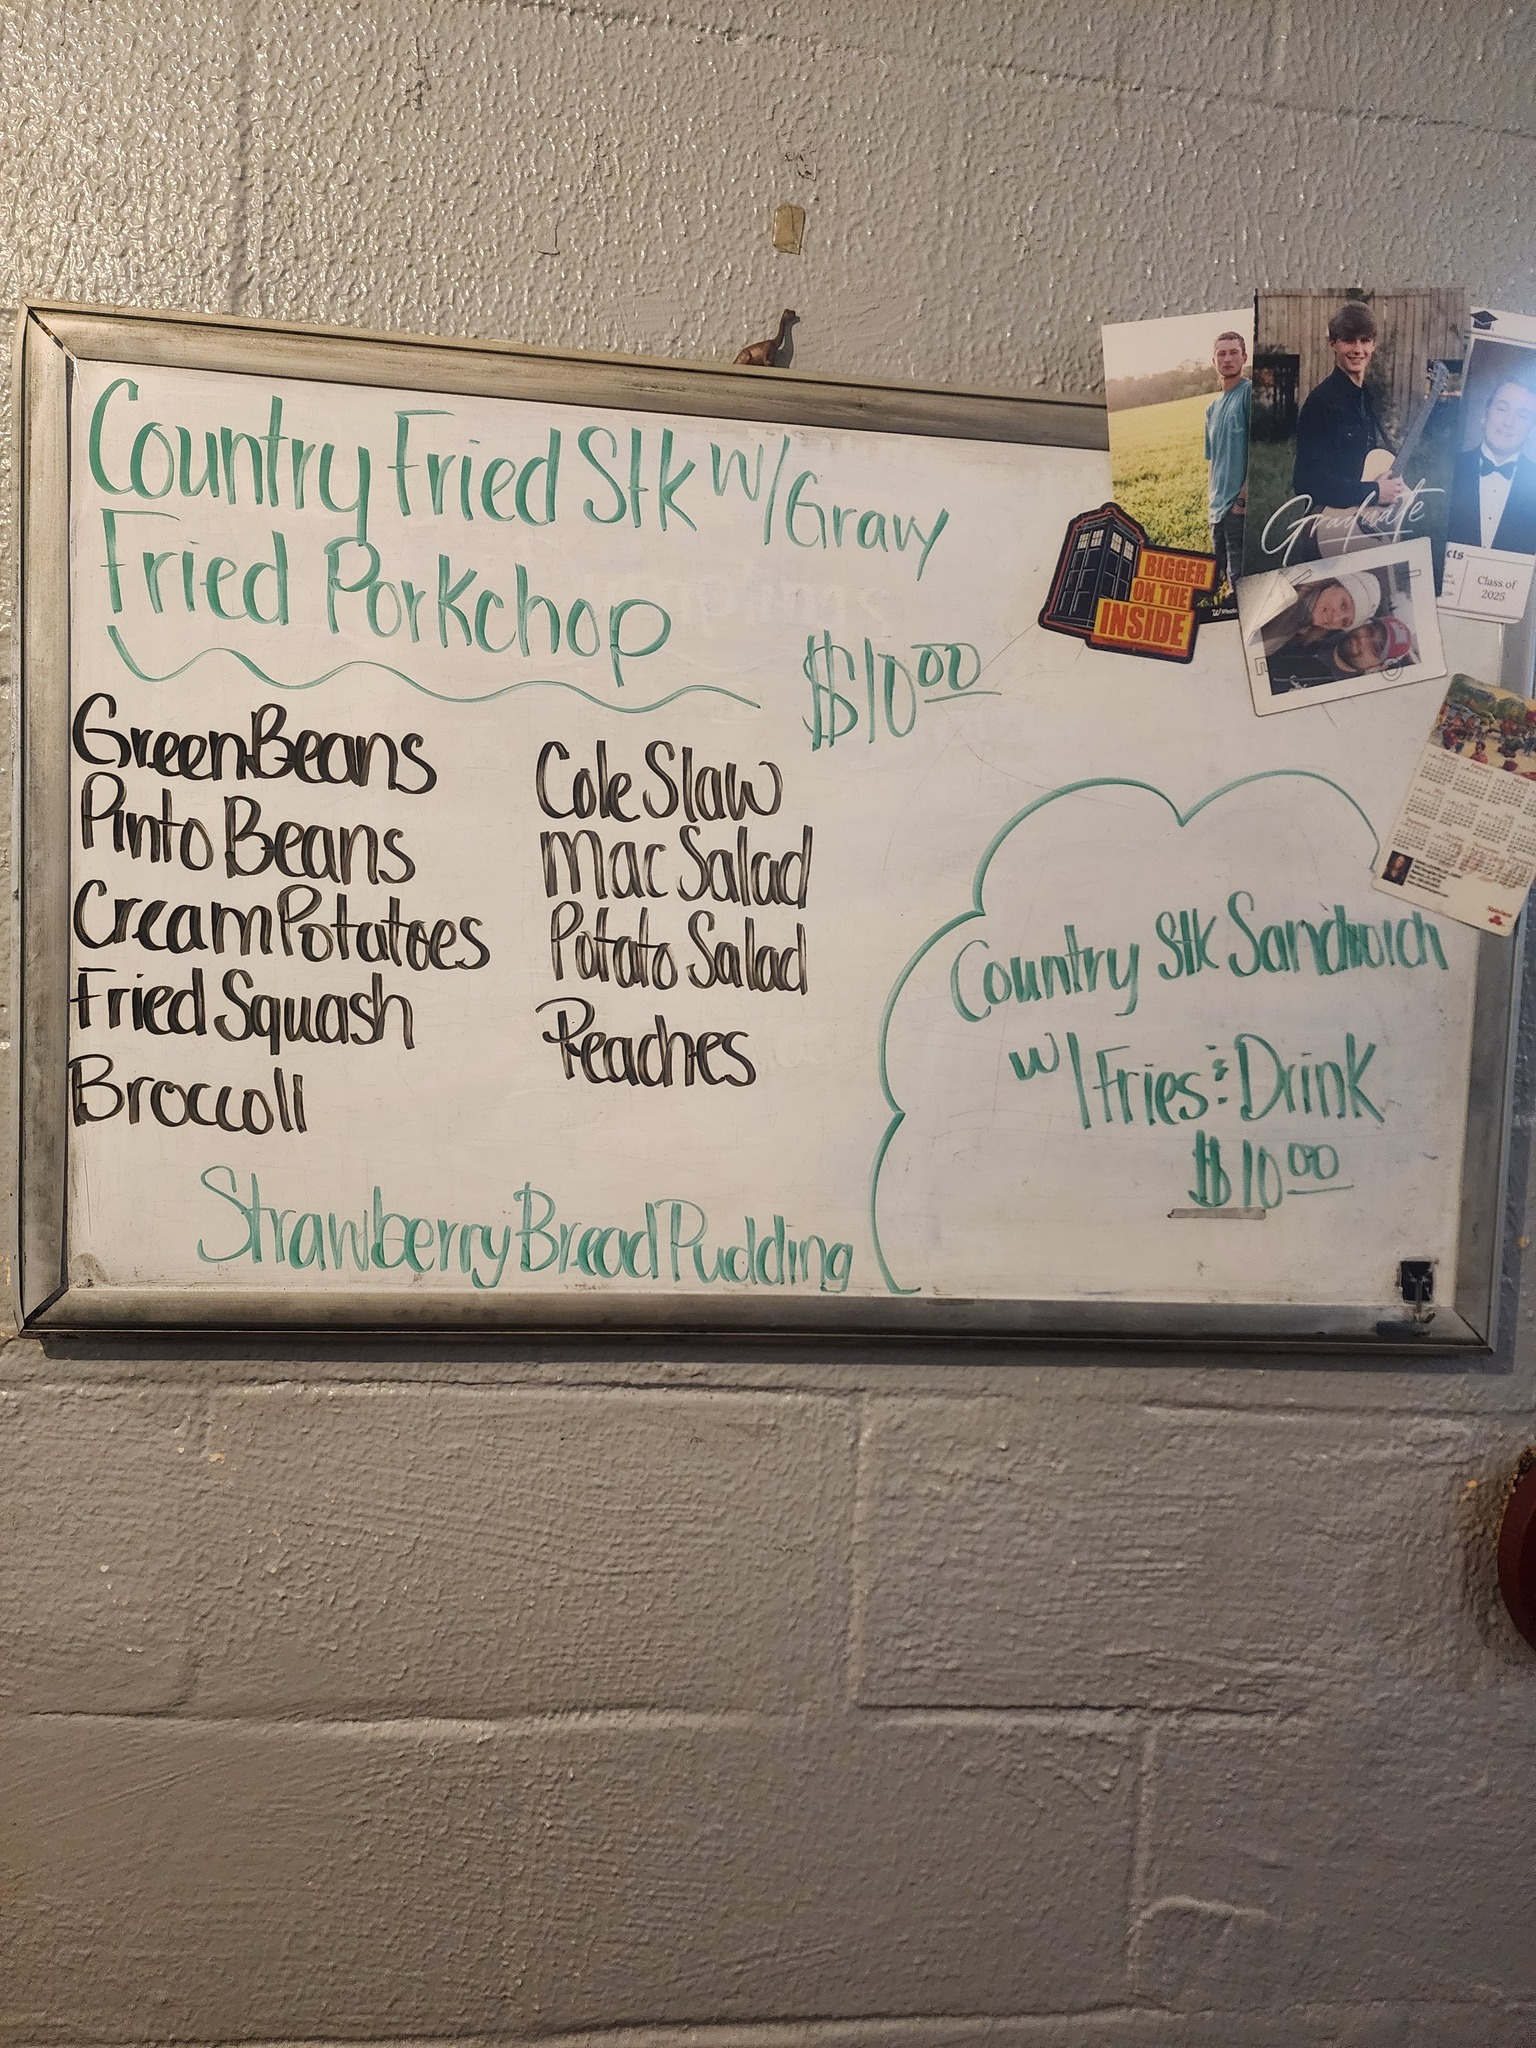 Country Fried Stk w/Gravy
Fried Porkchop
$10.00
Green Beans
Pinto Beans
Cream Potatoes
Fried Squash
Broccoli
Cole Slaw
Mac Salad
Potato Salad
Peaches
Strawberry Bread Pudding
Country Stk Sandwich
w/Fries & Drink
$10.00
BIGGER
ON THE
INSIDE
Graduate
Class of
2025